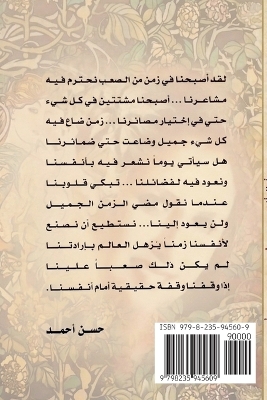 لقد أصبحنا في زمن من الصعب نحترم فيه
مشاعرنا ... أصبحنا مشتتين في كل شيء
حتي في إختيار مصائرنا ... زمن ضاع فيه
كل شيء جميل وضاعت حتي ضمائرنا
هل سيأتي يوما نشعر فيه بأنفسنا
ونعود فيه لفضائلنا ... تبكي قلوبنا
عندما نقول مضي الزمن الجميل
ولن يعود إلينا ... نستطيع أن نصنع
لأنفسنا زمنا يزهل العالم بإرادتنا
لم يكن ذلك صعباً علينا
إذا وقفنا وقفة حقيقية أمام أنفسنا.
حسن أحمد
ISBN 979-8-235-94560-9
90000
9 790235 945609